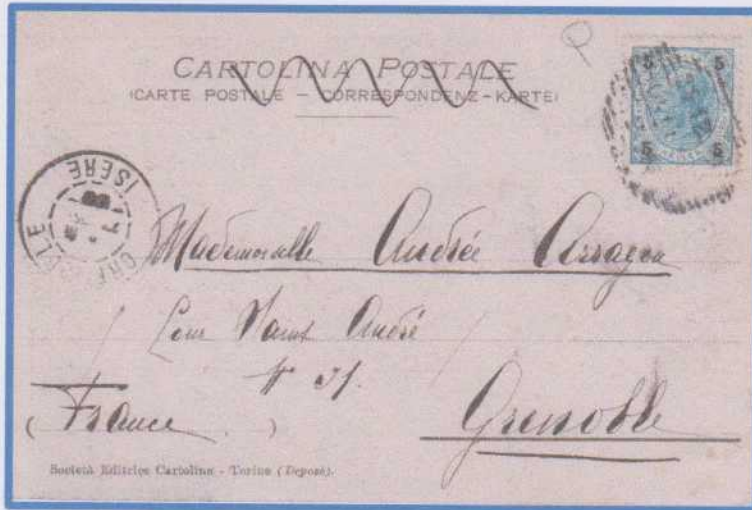 CARTOLINA POSTALE
(CARTE POSTALE – CORRESPONDENZ-KARTE)
5 5
5 5
GRENOBLE
ISERE
Mademoiselle Andrée Arragon
Cour Saint André
N° 31.
(France)
Grenoble
Società Editrice Cartoline - Torino (Deposé).